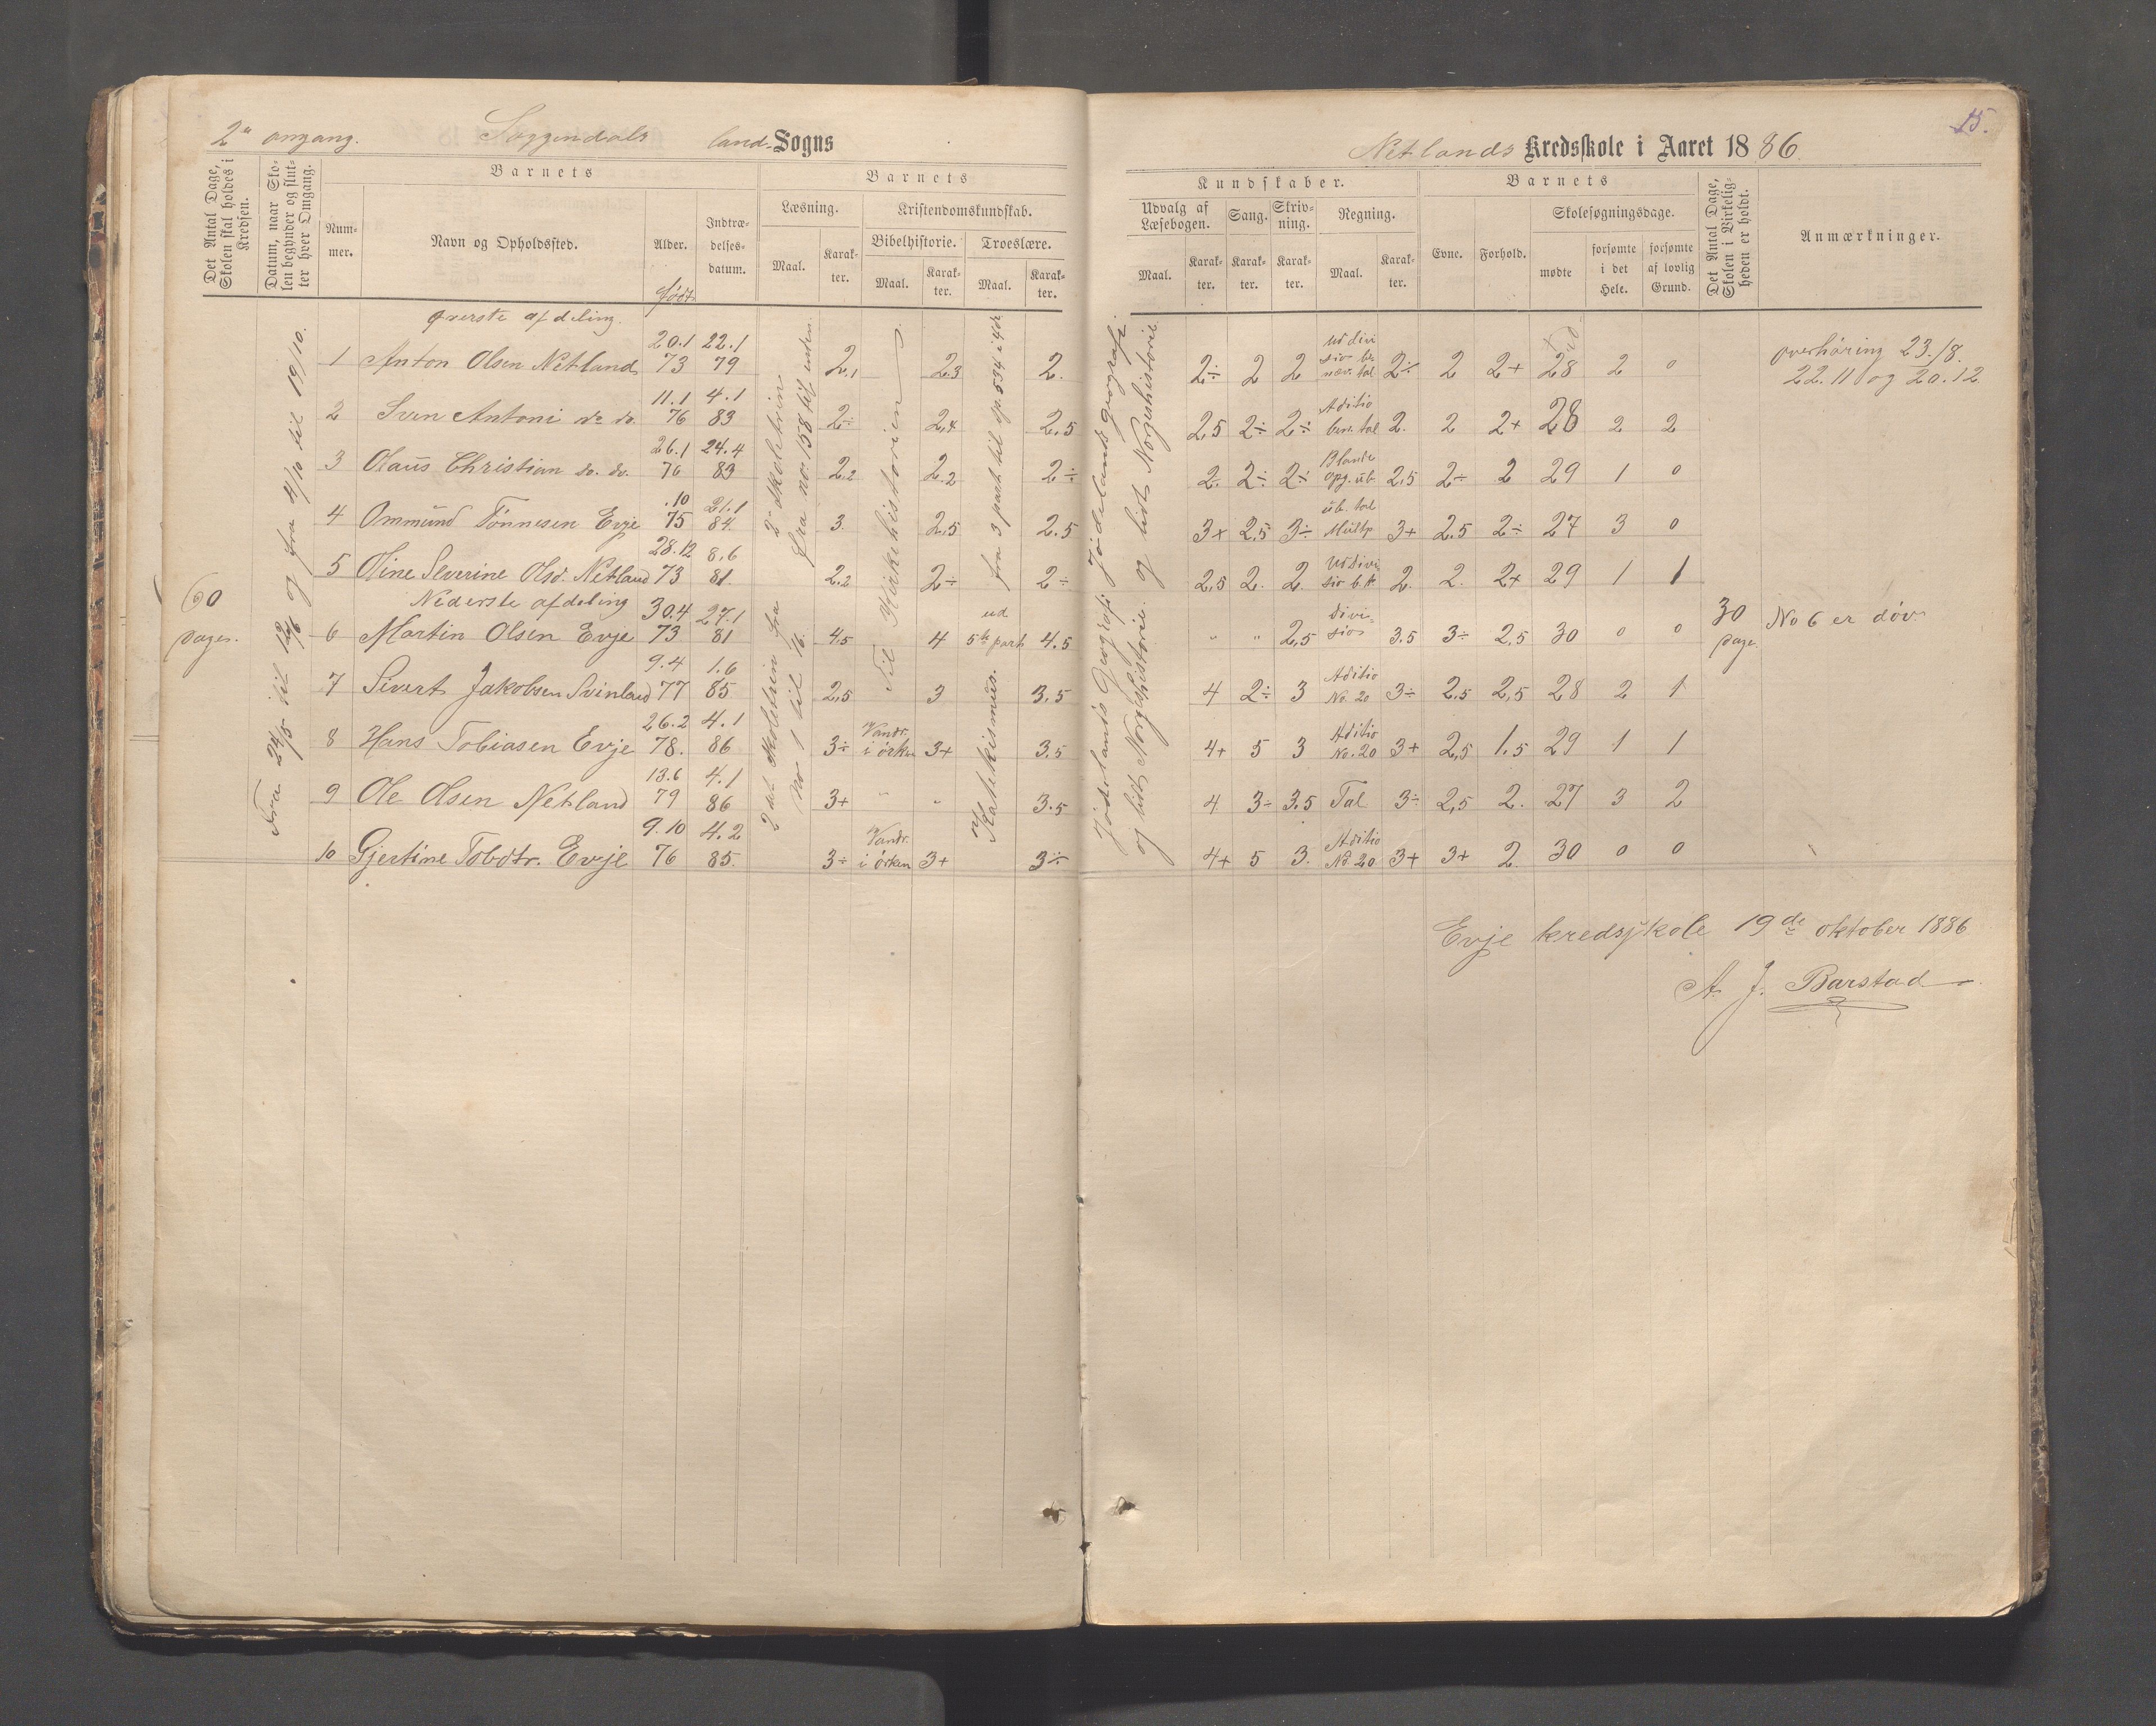 2den omgang. Soggendals land- Sogns
Det Antal Dage, Skolen skal holdes i Kredsen.
Datum, naar Skolen begynder og slutter hver Omgang.
Barnets
Nummer.
Navn og Opholdssted.
Alder.
født
Indtrædelsesdatum.
Barnets
Læsning.
Maal.
Karakter.
Kristendomskundskab.
Bibelhistorie.
Maal.
Karakter.
Troeslære.
Maal.
Karakter.
60
dager.
Fra 24/5 til 12/6 og fra 4/10 til 19/10.
øverste afdeling.
1 Anton Olsen Netland 20.1 73 22.1 79 2.1 2.3 2.
2 Sven Antoni do do. 11.1 76 4.1 83 2÷ 2,4 2.5
3 Olaus Christian do. do. 26.1 76 24.4 83 2.2 2.2 2÷
4 Ommund Tønnesen Evje .10 75 21.1 84. 3. 2,5 2.5
5 Oline Severine Olsd. Netland 28.12 73 8.6 81. 2.2 2÷ 2÷
Nederste afdeling
6 Martin Olsen Evje 30.4 73 27.1 81 4.5 4 ud 5te part 4.5
7 Sivert Jakobsen Svinland 9.4 77 1.6 85 2,5 3 3.5
8 Hans Tobiasen Evje 26.2 78. 4.1 86 3÷ Vandr. i ørken 3+ 3.5
9 Ole Olsen Netland 13.6 79 4.1 86 3+ " " 3.5
10 Gjertine Tobdtr. Evje 9.10 76 4.2 85. 3÷ Vandr. i ørken 3+ 3÷
fra no. 158 til enden.
2det skoletrin fra no 1 til 16.
Til Kirkehistorien
fra 3 part til sp. 534 i 4de
Katekismus.
15.
Netlands Kredsskole i Aaret 1886
Kundskaber.
Udvalg af Læsebogen.
Maal.
Karakter.
Sang.
Karakter.
Skrivning.
Karakter.
Regning.
Maal.
Karakter.
Barnets
Evne.
Forhold.
Skolesøgningsdage.
mødte
forsømte i det Hele.
forsømte af lovlig Grund.
Det Antal Dage, Skolen i Virkeligheden er holdt.
Anmærkninger.
Jøderlands geografi og lidt Norgeshistorie.
Jøderlands Geografi og lidt Norgeshistorie.
2÷ 2 2 2÷ 2 2+ 28 2 0
2,5 2÷ 2÷ Aditio ben. tal 2. 2 2+ 28 2 2
2. 2÷ 2÷ Blande opg. ub. 2,5 2÷ 2 29 1 0
3+ 2,5 3÷ ub. tal Multp 3+ 2.5 2÷ 27 3 0
2,5 2. 2. 2. 2. 2+ 29 1 1
" " 2,5 Division 3.5 3÷ 2,5 30 0 0
4 2÷ 3 Aditio No. 20 3÷ 2,5 2,5 28 2 1
4+ 5 3 Aditio No. 20 3+ 2,5 1.5 29 1 1
4 3÷ 3.5 Tal 3÷ 2,5 2. 27 3 2
4+ 5 3. Aditio No. 20 3+ 3+ 2 30 0 0
30 dage.
overhøring 23./8.
22.11 og 20.12
No 6 er døv.
Evje kredsskole 19de oktober 1886
A. J. Barstad